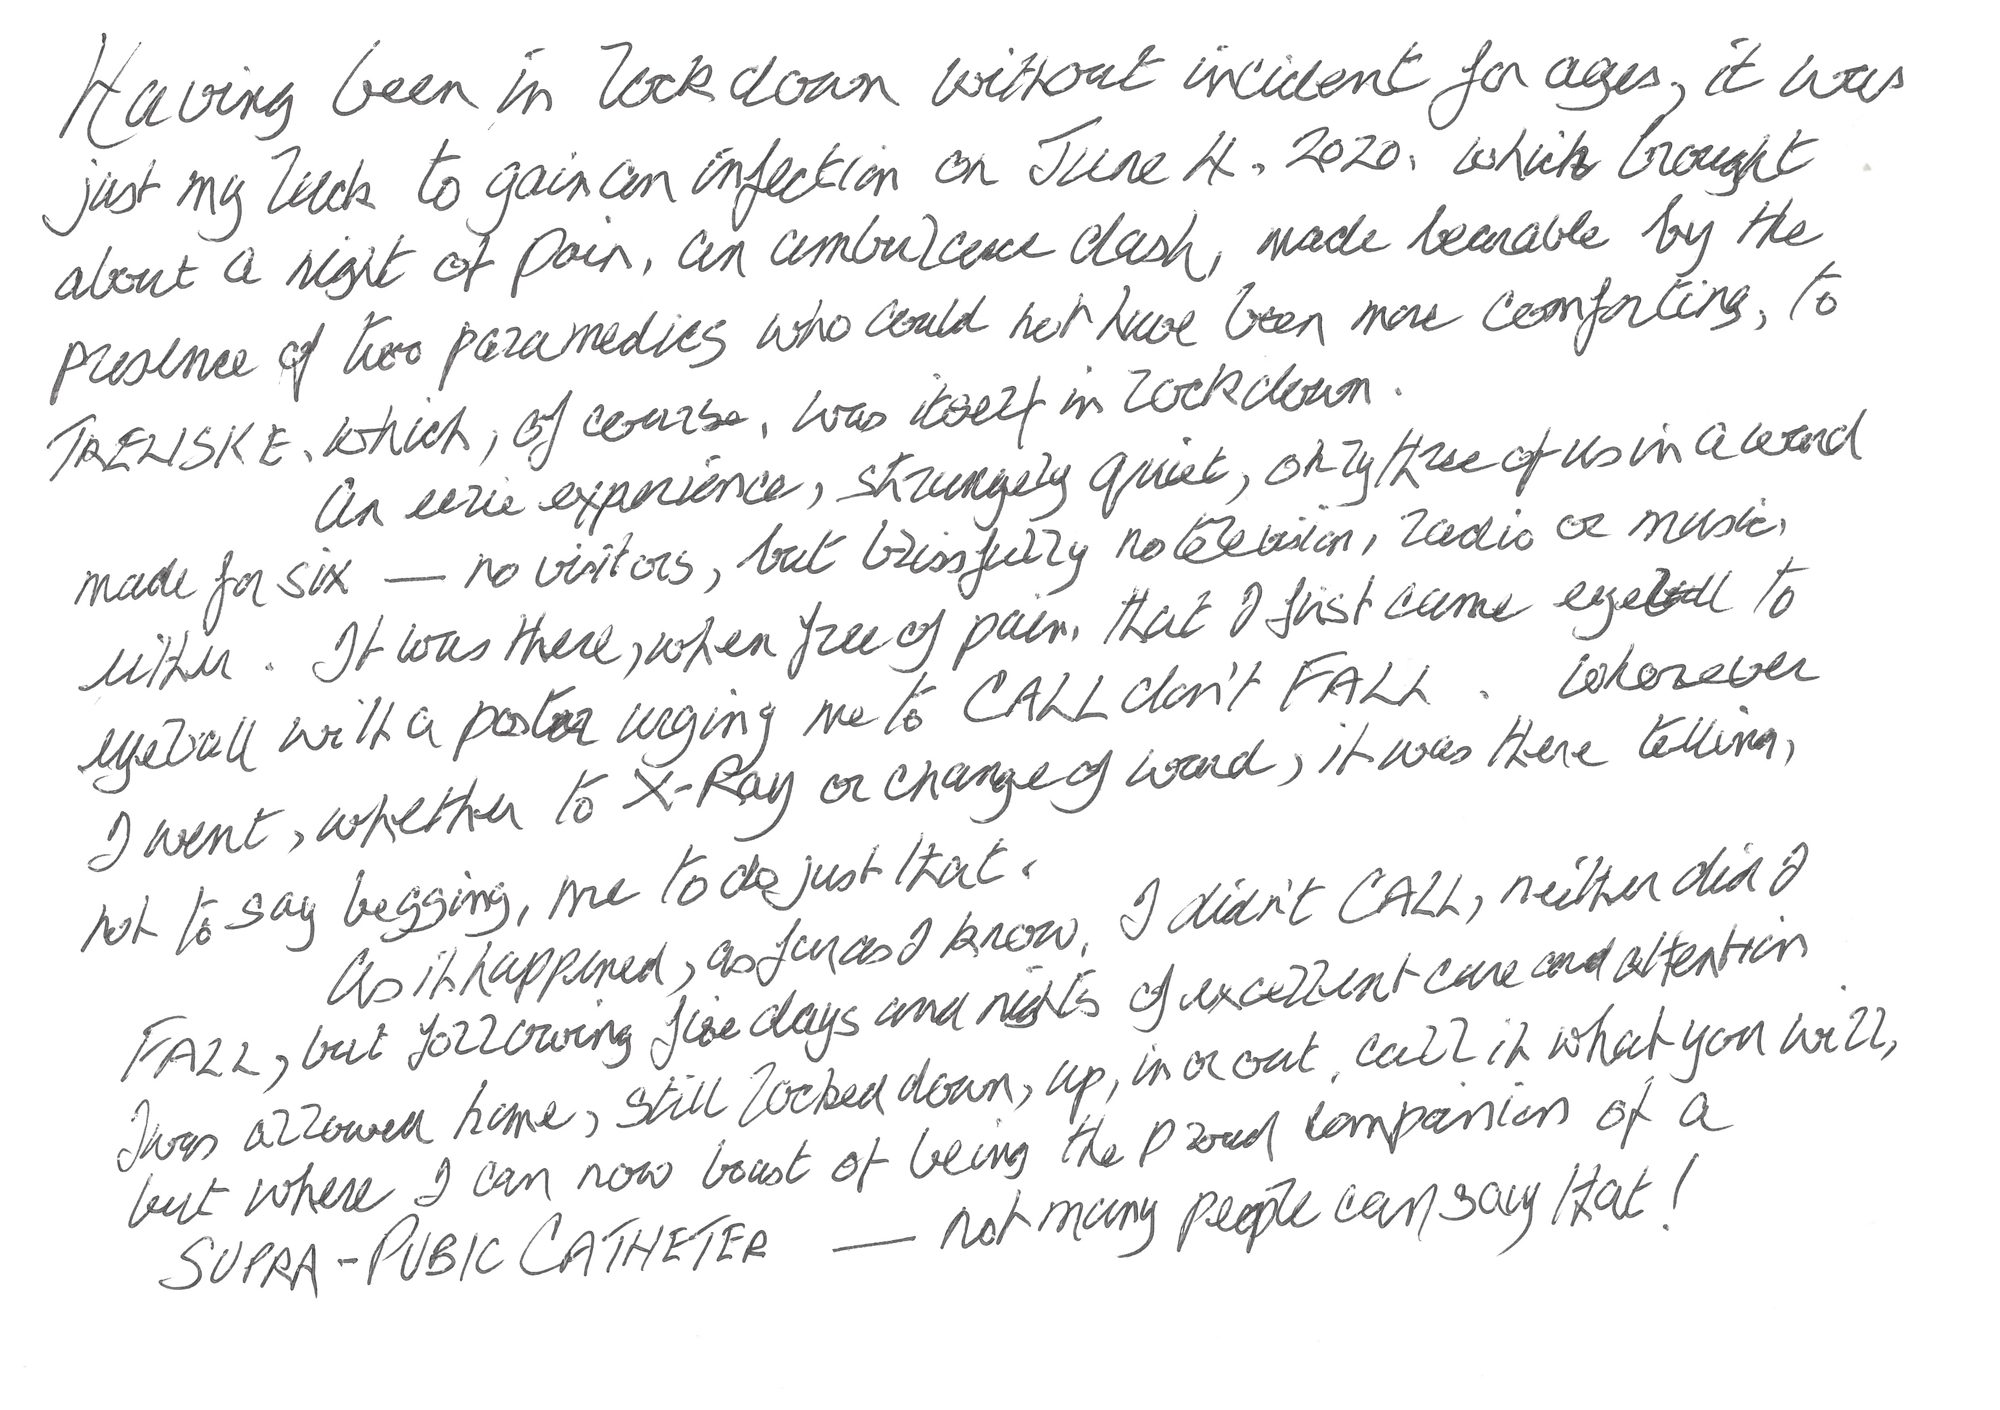 Having been in lockdown without incident for ages, it was
just my luck to gain an infection on June 4. 2020. which brought
about a night of pain, an ambulance dash, made bearable by the
presence of two paramedics who could not have been more comforting, to
TRELISKE. which, of course, was itself in lockdown.
An eerie experience, strangely quiet, only three of us in a ward
made for six — no visitors, but blissfully no television, radio or music,
either. It was there, when free of pain, that I first came eyeball to
eyeball with a poster urging me to CALL don't FALL. Wherever
I went, whether to X-Ray or change of ward, it was there telling,
not to say begging, me to do just that.
As it happened, as far as I know, I didn't CALL, neither did I
FALL, but following five days and nights of excellent care and attention
I was allowed home, still locked down, up, in or out, call it what you will,
but where I can now boast of being the proud companion of a
SUPRA-PUBIC CATHETER — not many people can say that!